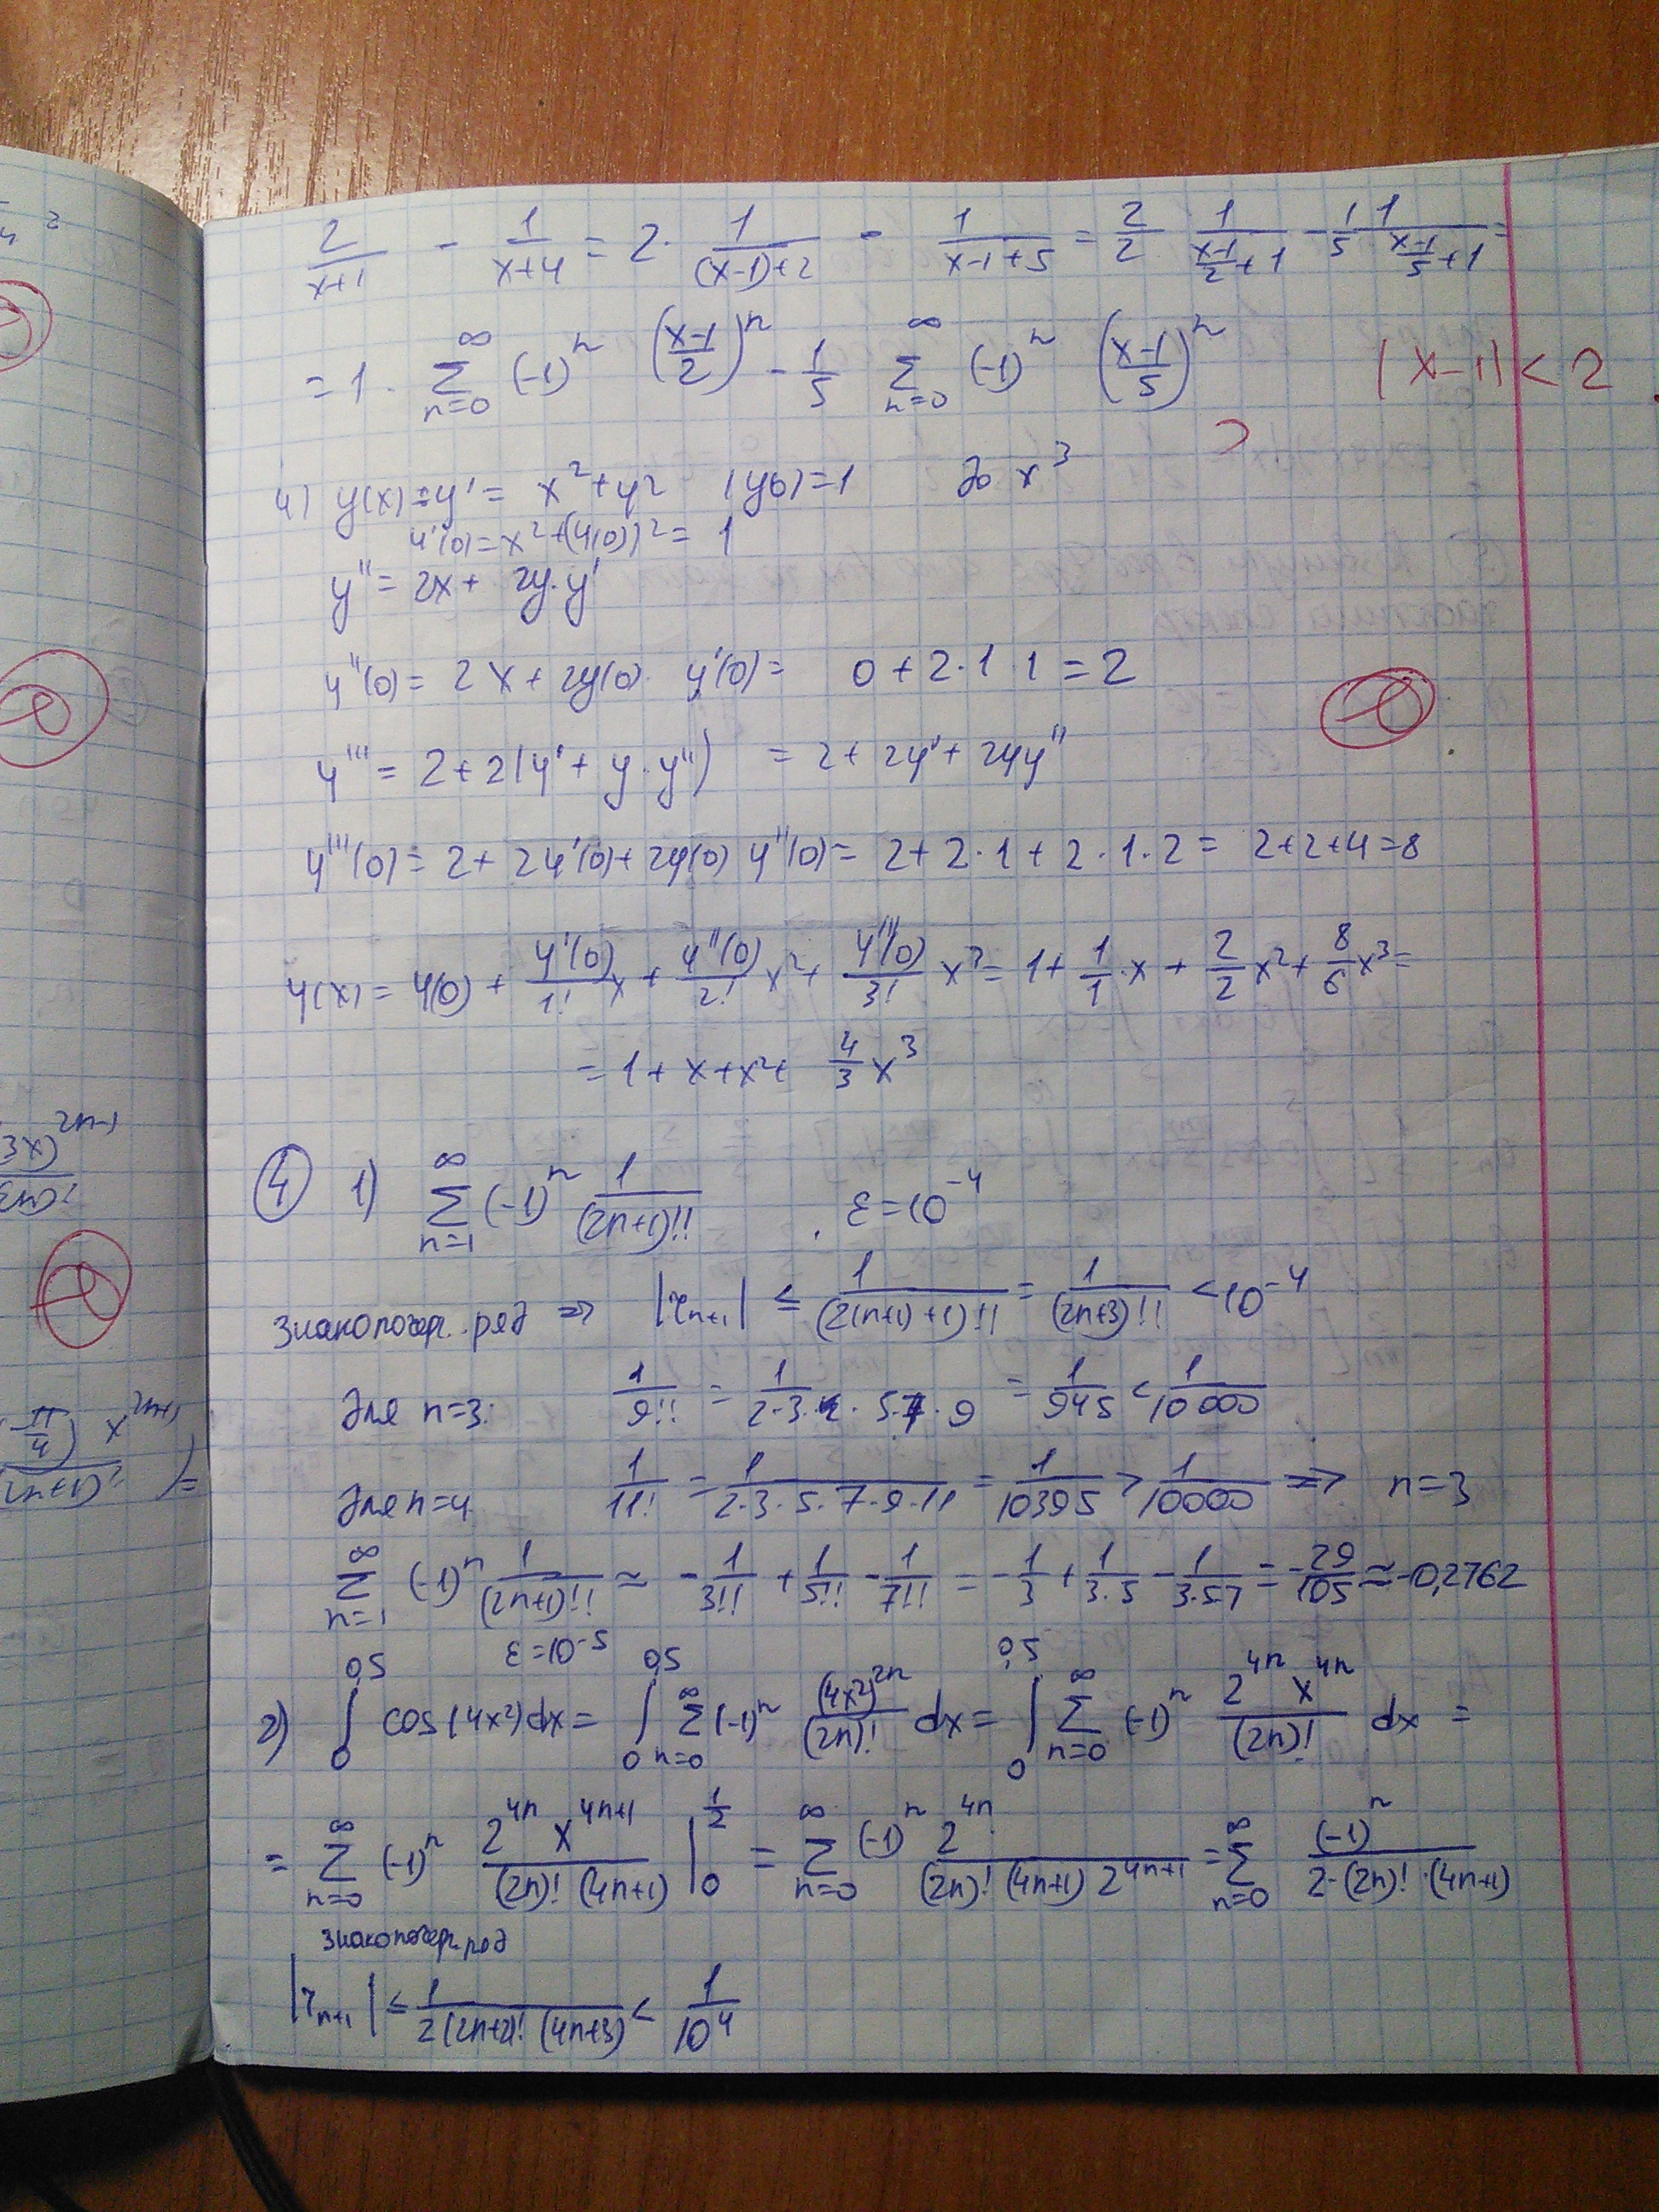 2/(x+1) - 1/(x+4) = 2· 1/((x-1)+2) - 1/(x-1+5) = 2/2 1/((x-1)/2+1) - 1/5 1/((x-1)/5+1) =
= 1· ∑_{n=0}^{∞} (-1)^n ((x-1)/2)^n - 1/5 ∑_{n=0}^{∞} (-1)^n ((x-1)/5)^n |x-1| < 2
4) y(x) = y' = x^2+y^2 (y(0)=1 до x^3
y'(0) = x^2+(y(0))^2 = 1
y'' = 2x + 2y·y'
y''(0) = 2x + 2y(0)· y'(0) = 0 + 2·1·1 = 2
y''' = 2+2(y' + y·y'') = 2+ 2y' + 2yy''
y'''(0) = 2+ 2y'(0) + 2y(0) y''(0) = 2+ 2·1 + 2·1·2 = 2+2+4=8
y(x) = y(0) + y'(0)/1! x + y''(0)/2! x^2 + y'''(0)/3! x^3 = 1+ 1/1·x + 2/2 x^2 + 8/6 x^3 =
= 1 + x + x^2 + 4/3 x^3
④ 1) ∑_{n=1}^{∞} (-1)^n 1/(2n+1)!! . ε=10^{-4}
знакочеред. ряд => |r_{n+1}| ≤ 1/(2(n+1)+1)!! = 1/(2n+3)!! < 10^{-4}
для n=3: 1/9!! = 1/(2·3· ·5·7·9) = 1/945 < 1/10000
для n=4 1/11! = 1/(2·3·5·7·9·11) = 1/10395 > 1/10000 => n=3
∑_{n=1}^{∞} (-1)^n 1/(2n+1)!! ≈ - 1/3!! + 1/5!! - 1/7!! = - 1/3 + 1/(3·5) - 1/(3·5·7) = -29/105 ≈ -0,2762
ε=10^{-5}
2) ∫_0^{0,5} cos(4x^2)dx = ∫_0^{0,5} ∑_{n=0}^{∞} (-1)^n (4x^2)^{2n}/(2n)! dx = ∫_0^{0,5} ∑_{n=0}^{∞} (-1)^n 2^{4n} x^{4n}/(2n)! dx =
= ∑_{n=0}^{∞} (-1)^n 2^{4n} x^{4n+1}/((2n)! (4n+1)) |_0^{1/2} = ∑_{n=0}^{∞} (-1)^n 2^{4n}/((2n)! (4n+1) 2^{4n+1}) = ∑_{n=0}^{∞} (-1)^n/(2·(2n)!·(4n+1))
знакочеред. ряд
|r_{n+1}| ≤ 1/(2(2n+2)! (4n+3)) < 1/10^4